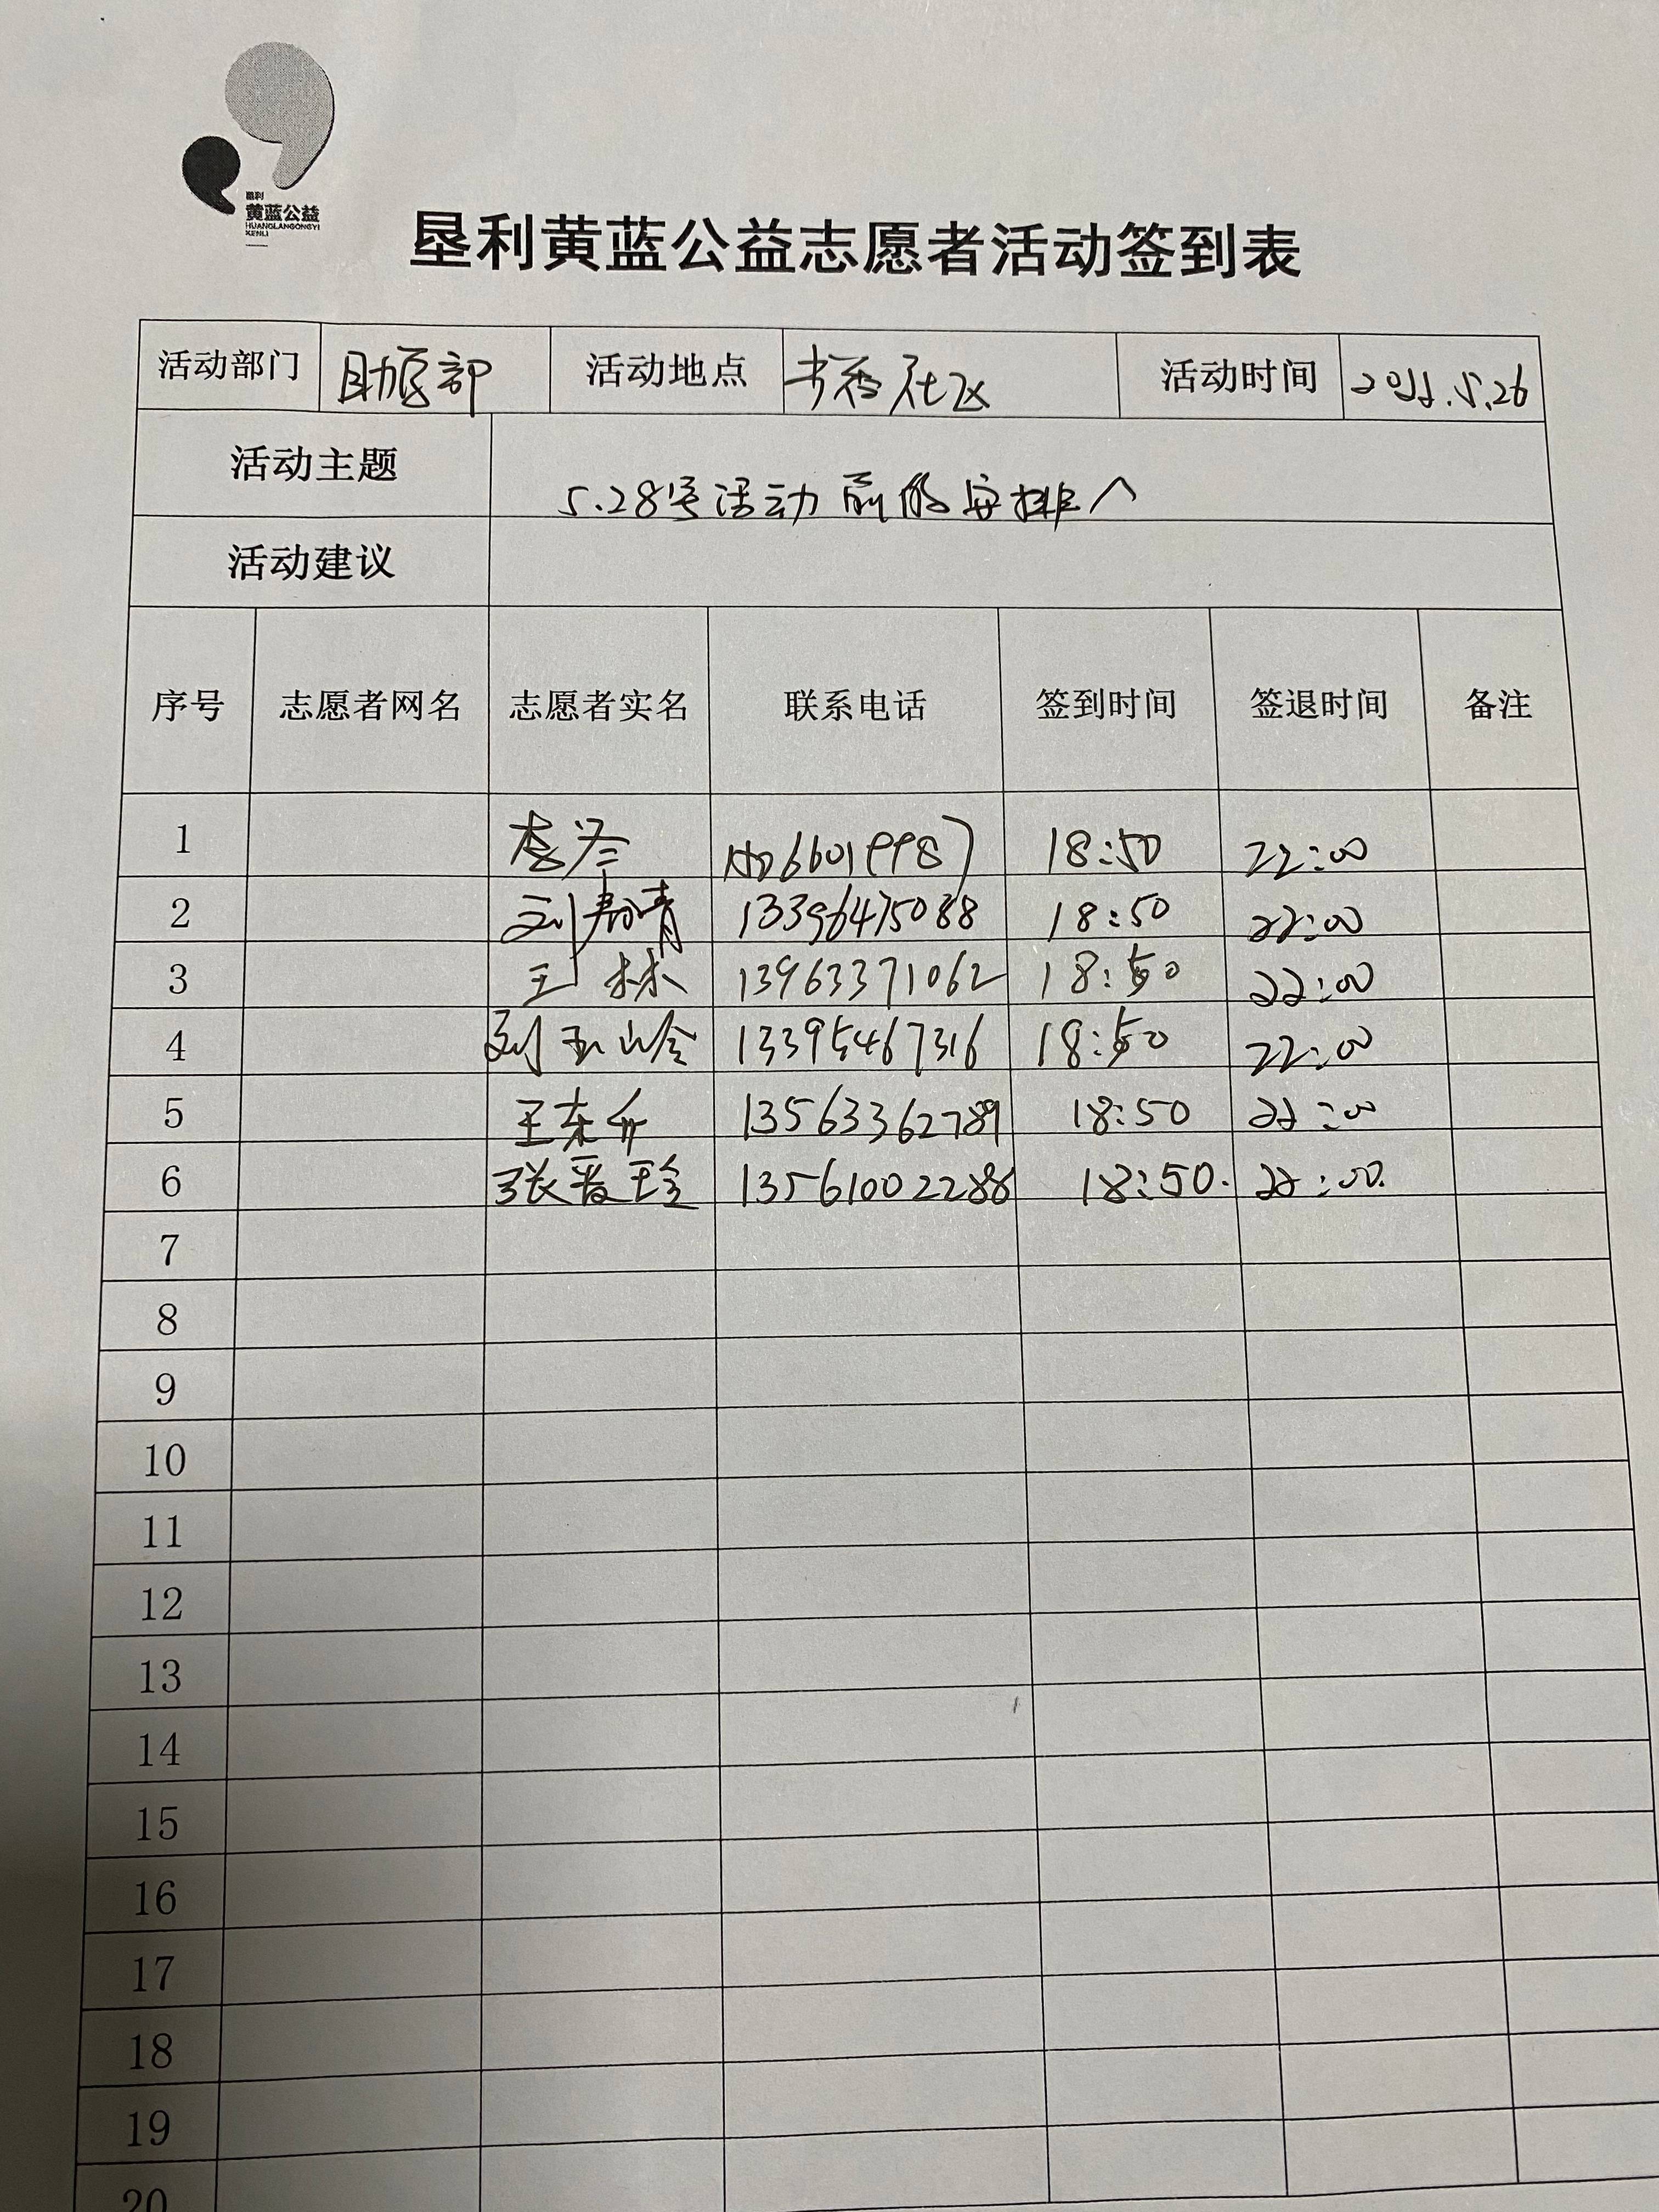 垦利
黄蓝公益
HUANGLANGONGYI
KENLI
垦利黄蓝公益志愿者活动签到表
活动部门 助医部 活动地点 书香社区 活动时间 2022.5.26
活动主题 5.28号活动前的安排
活动建议
序号 志愿者网名 志愿者实名 联系电话 签到时间 签退时间 备注
1 18:50 22:00
2 刘寿青 13396475088 18:50 22:00
3 王林 13963371062 18:50 22:00
4 刘玉岭 13395467316 18:50 22:00
5 王东升 13563362789 18:50 22:00
6 张晋玲 13561002288 18:50. 22:00.
7
8
9
10
11
12
13
14
15
16
17
18
19
20